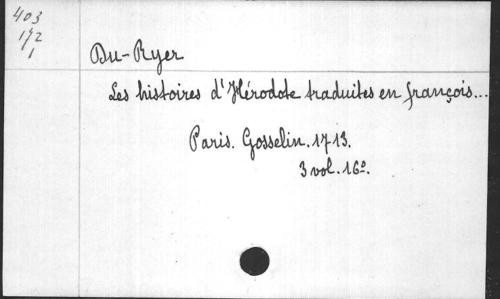 403
172
1
Du-Ryer
Les histoires d'Hérodote traduites en françois...
Paris. Gosselin. 1713.
3 vol. 16º.